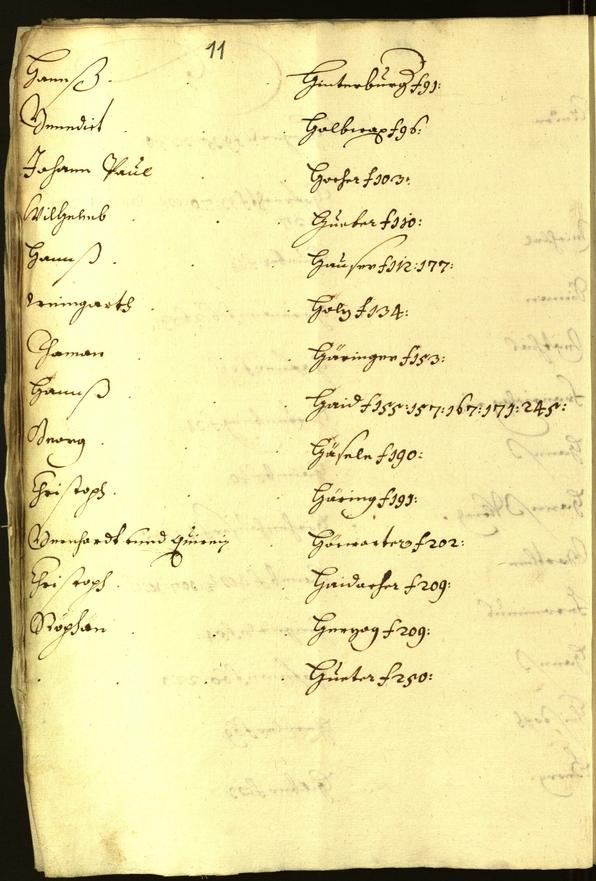 11
Hannß . . Hinterburg f 91:
Benedict . . Holbwax f 96:
Johann Paul . . Hocher f 103:
Wilhelmb . . Hueber f 110:
Hannß . . Hauser f 112: 177:
Weingarth . . Holz f 134:
Thaman . . Häringer f 153:
Hannß . . Haid f 155: 157: 167: 171: 245:
Georg . . Häsele f 190:
Christoph . . Häring f 191:
Bernhardt unnd Quirein . Hörwarter f 202:
Christoph . . Haidacher f 209:
Stöphan . . Herzog f 209:
. . . Hueter f 250: